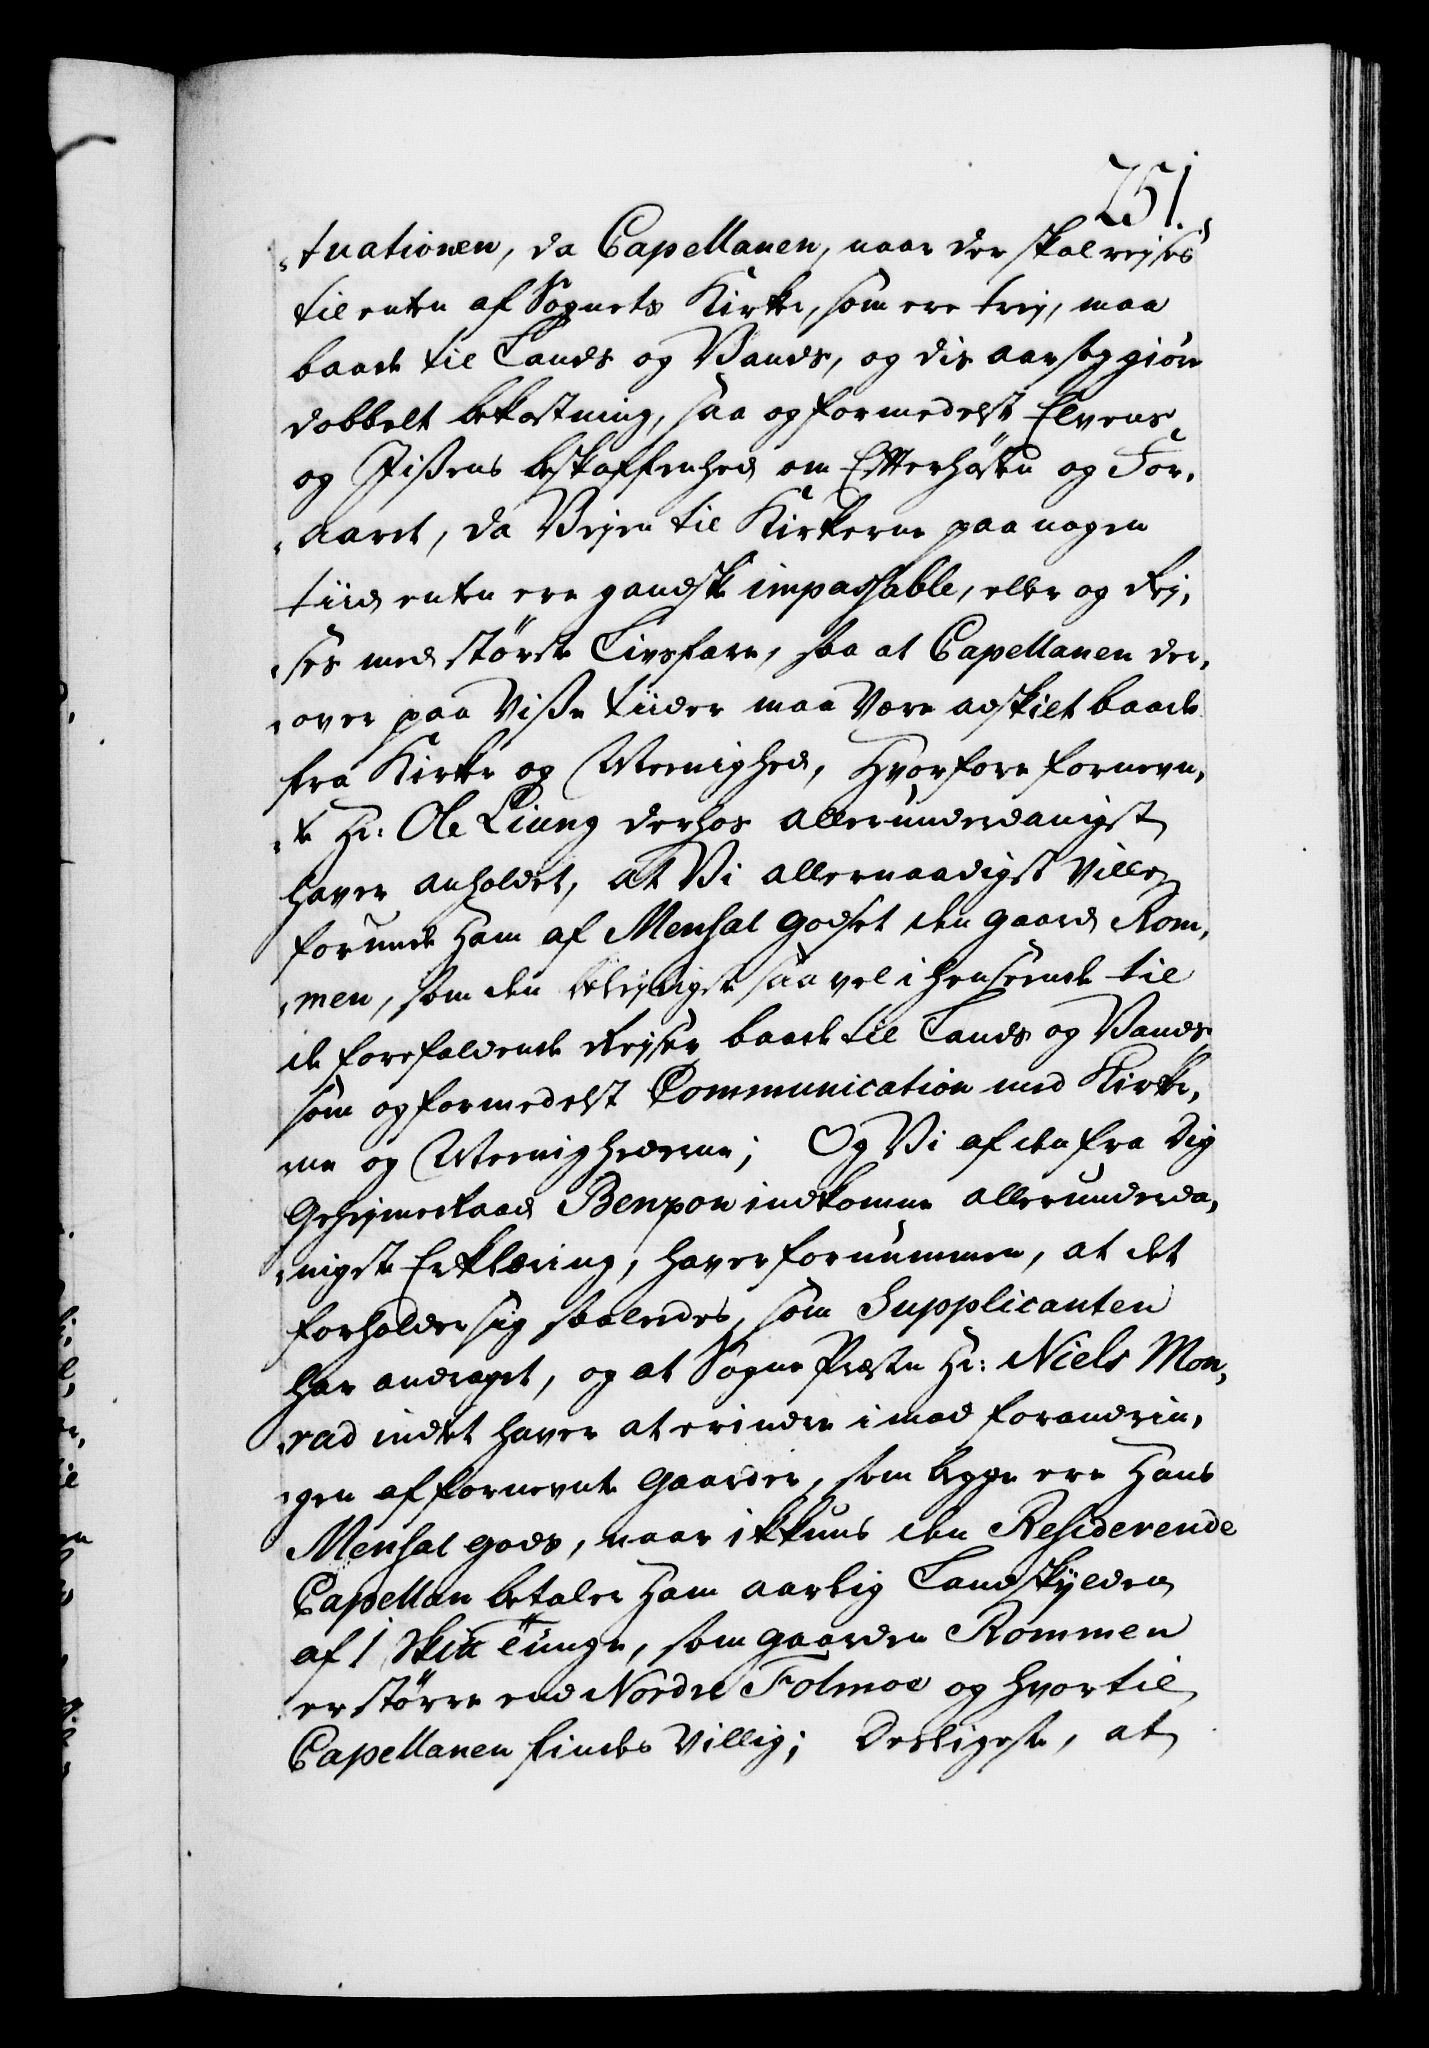 251.
„tuationen, da Capellanen, naar der skal rejses
til enten af Sognets Kirker, som ere trej, maa
baade til Lands og Vands, og dis aarsag giøre
dobbelt bekostning, saa og formedelst Elvens
og Jißens beskaffenhed om Efterhøsten og For„
„aaret, da Vejen til Kirkerne paa nogen
tiid enten ere gandske impassable, eller og Rej„
„ses med største Livsfare, saa at Capellanen der„
„over paa Viße tiider maa være adskilt baade
fra Kirke og Meenighed, Hvorfore fornevn„
„te Hr: Ole Liung derhos allerunderdanigst
haver anholdet, at Vi allernaadigst Ville
forunde Ham af Mensal godset den gaard Rom„
„men, som den belejligste saa vel i henseende til
de forefaldende Rejser baade til Lands og Vands,
som og formedelst Communication med Kirker„
ne og Meenighederne; Og Vi af den fra Dig
Gehejmeraad Benzon indkomne allerunderda„
„nigste Erklæring, haver fornummen, at det
forholder sig saaledes, som Supplicanten
har andraget, og at Sogne Præsten Hr: Niels Mon„
„rad intet haver at erindre imod forandrin„
„gen af fornevnte Gaarder, som begge ere Hans
Mensal gods, naar ikkuns den Residerende
Capellan betaler Ham aarlig Landskylden
af 1 Skin tunge, som gaarden Rommen
er større end Nordre Folmoe og hvortil
Capellanen findes Villig; Desligeste, at